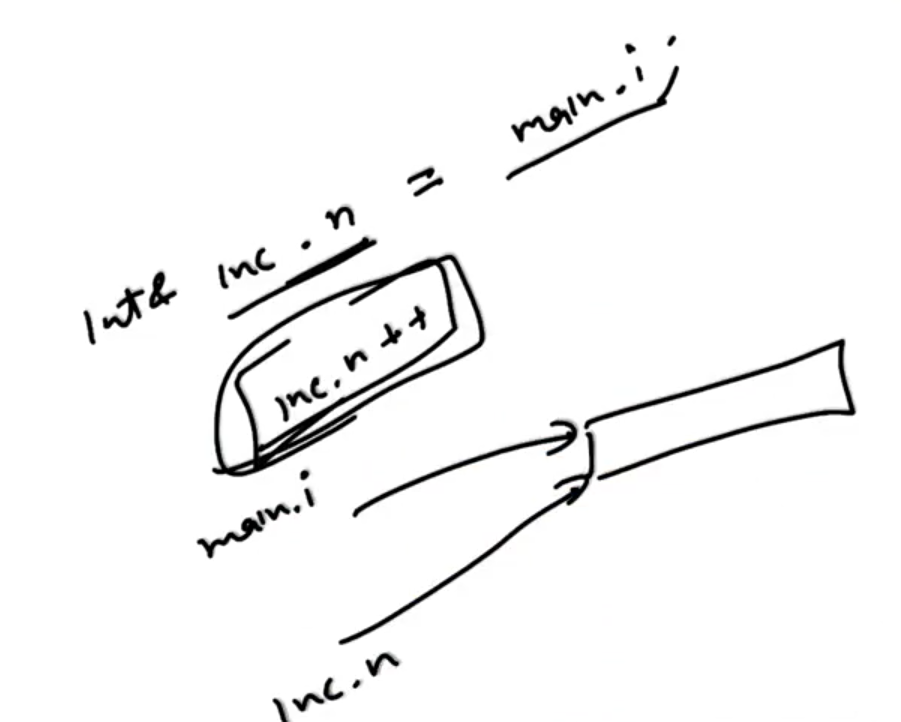 Int& inc.n = main.i;
inc.n++
main.i
inc.n